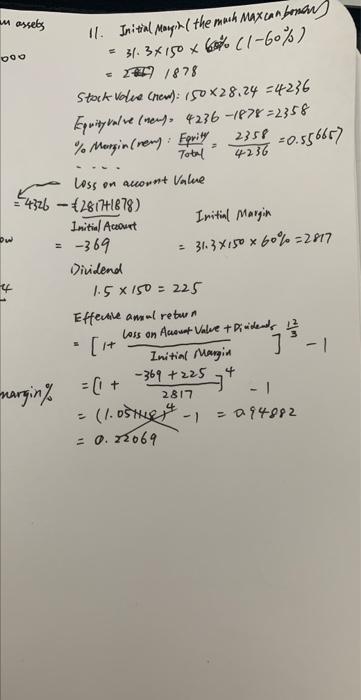 m assets
000
11. Initial Margin (the much MAX can borrow)
= 31.3×150 × 60% (1-60%)
= 1878
Stock Value (new): 150×28.24 = 4236
Equity value (new) = 4236 - 1878 = 2358
% Margin (new) : Equity/Total = 2358/4236 = 0.556657
....
Loss on account Value
= 4326 - (2817+1878)
Initial Account
Initial Margin
ow
= -369
= 31.3×150×60% = 2817
Dividend
1.5 × 150 = 225
Effective annual return
= [1+ (Loss on Account Value + Dividends)/Initial Margin]^(12/3) - 1
margin%
= [1 + (-369+225)/2817]^4 - 1
= (1.05118)^4 - 1 = 0.94882
= 0.22069